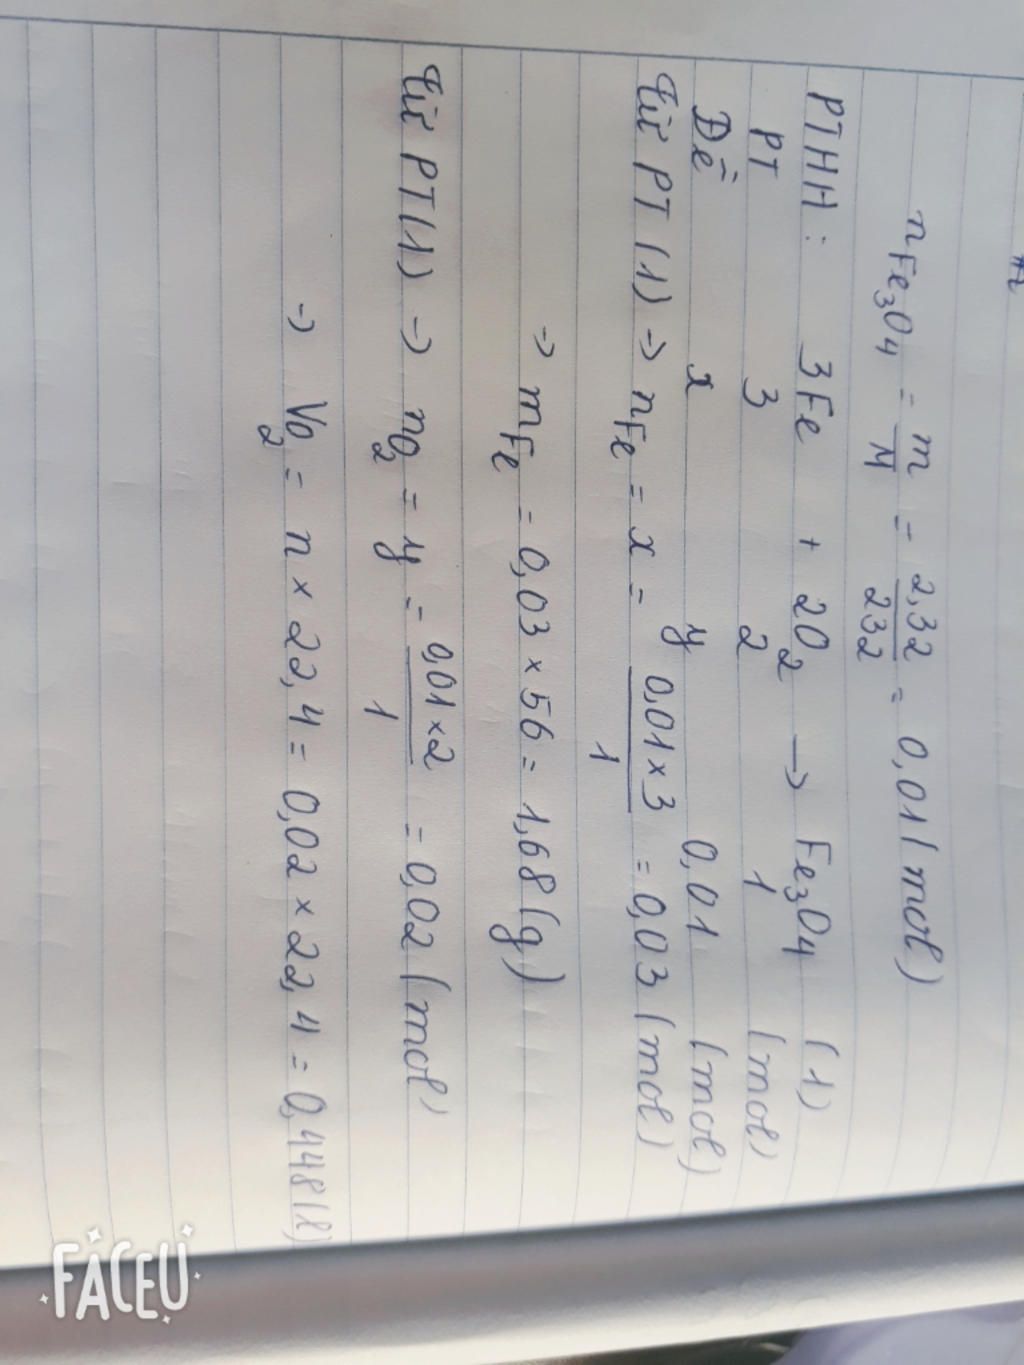 nFe3O4 = m/M = 2,32/232 = 0,01 (mol)
PTHH: 3Fe + 2O2 → Fe3O4 (1)
PT 3 2 1 (mol)
Đề x y 0,01 (mol)
Từ PT (1) → nFe = x = 0,01 × 3/1 = 0,03 (mol)
→ mFe = 0,03 × 56 = 1,68 (g)
Từ PT (1) → nO2 = y = 0,01 × 2/1 = 0,02 (mol)
→ VO2 = n × 22,4 = 0,02 × 22,4 = 0,448 (l)
FACEU